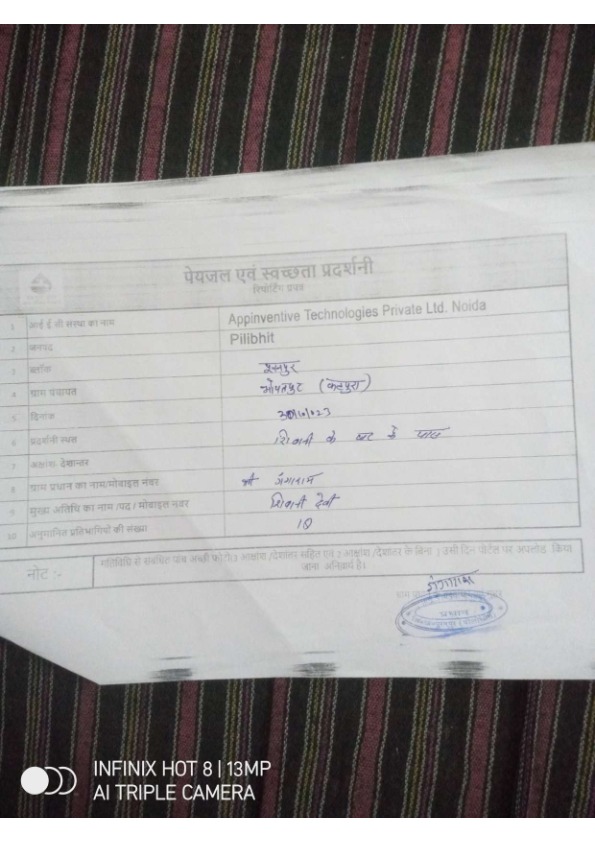 पेयजल एवं स्वच्छता प्रदर्शनी
रिपोर्टिंग प्रपत्र
1 आई ई सी संस्था का नाम Appinventive Technologies Private Ltd. Noida
2 जनपद Pilibhit
3 ब्लॉक
4 ग्राम पंचायत
5 दिनांक
6 प्रदर्शनी स्थल शिवानी के घर के पास
7 अक्षांश- देशान्तर
8 ग्राम प्रधान का नाम/मोबाइल नंबर श्री गंगाराम
9 मुख्य अतिथि का नाम /पद / मोबाइल नंबर शिवानी देवी
10 अनुमानित प्रतिभागियों की संख्या 10
नोट :- गतिविधि से संबंधित पांच अच्छी फोटो(3 अक्षांश /देशांतर सहित एवं 2 अक्षांश /देशांतर के बिना ) उसी दिन पोर्टल पर अपलोड किया
जाना अनिवार्य है।
गंगाराम
प्रधान
INFINIX HOT 8 | 13MP
AI TRIPLE CAMERA